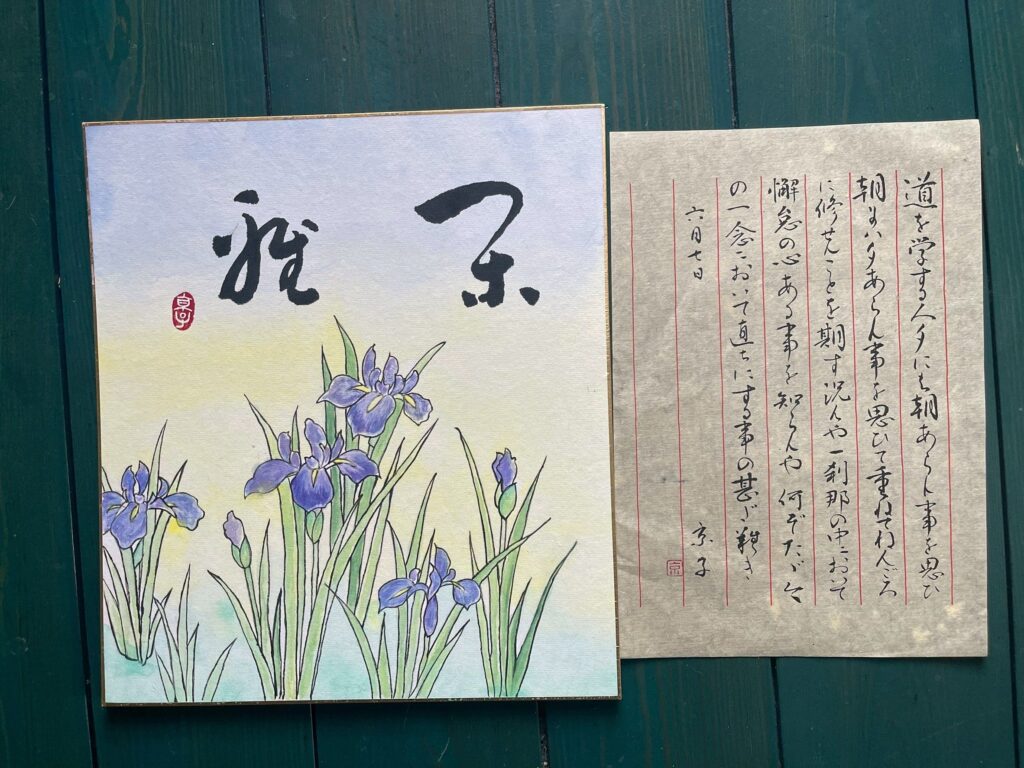 閑雅
京子
道を学する人夕には朝あらん事を思ひ
朝にハ夕あらん事を思ひて重ねてねんごろ
に修せんことを期す況んや一刹那の中において
懈怠の心ある事を知らんや何ぞたゞ今
の一念において直ちにする事の甚だ難き
六月七日
京子
京